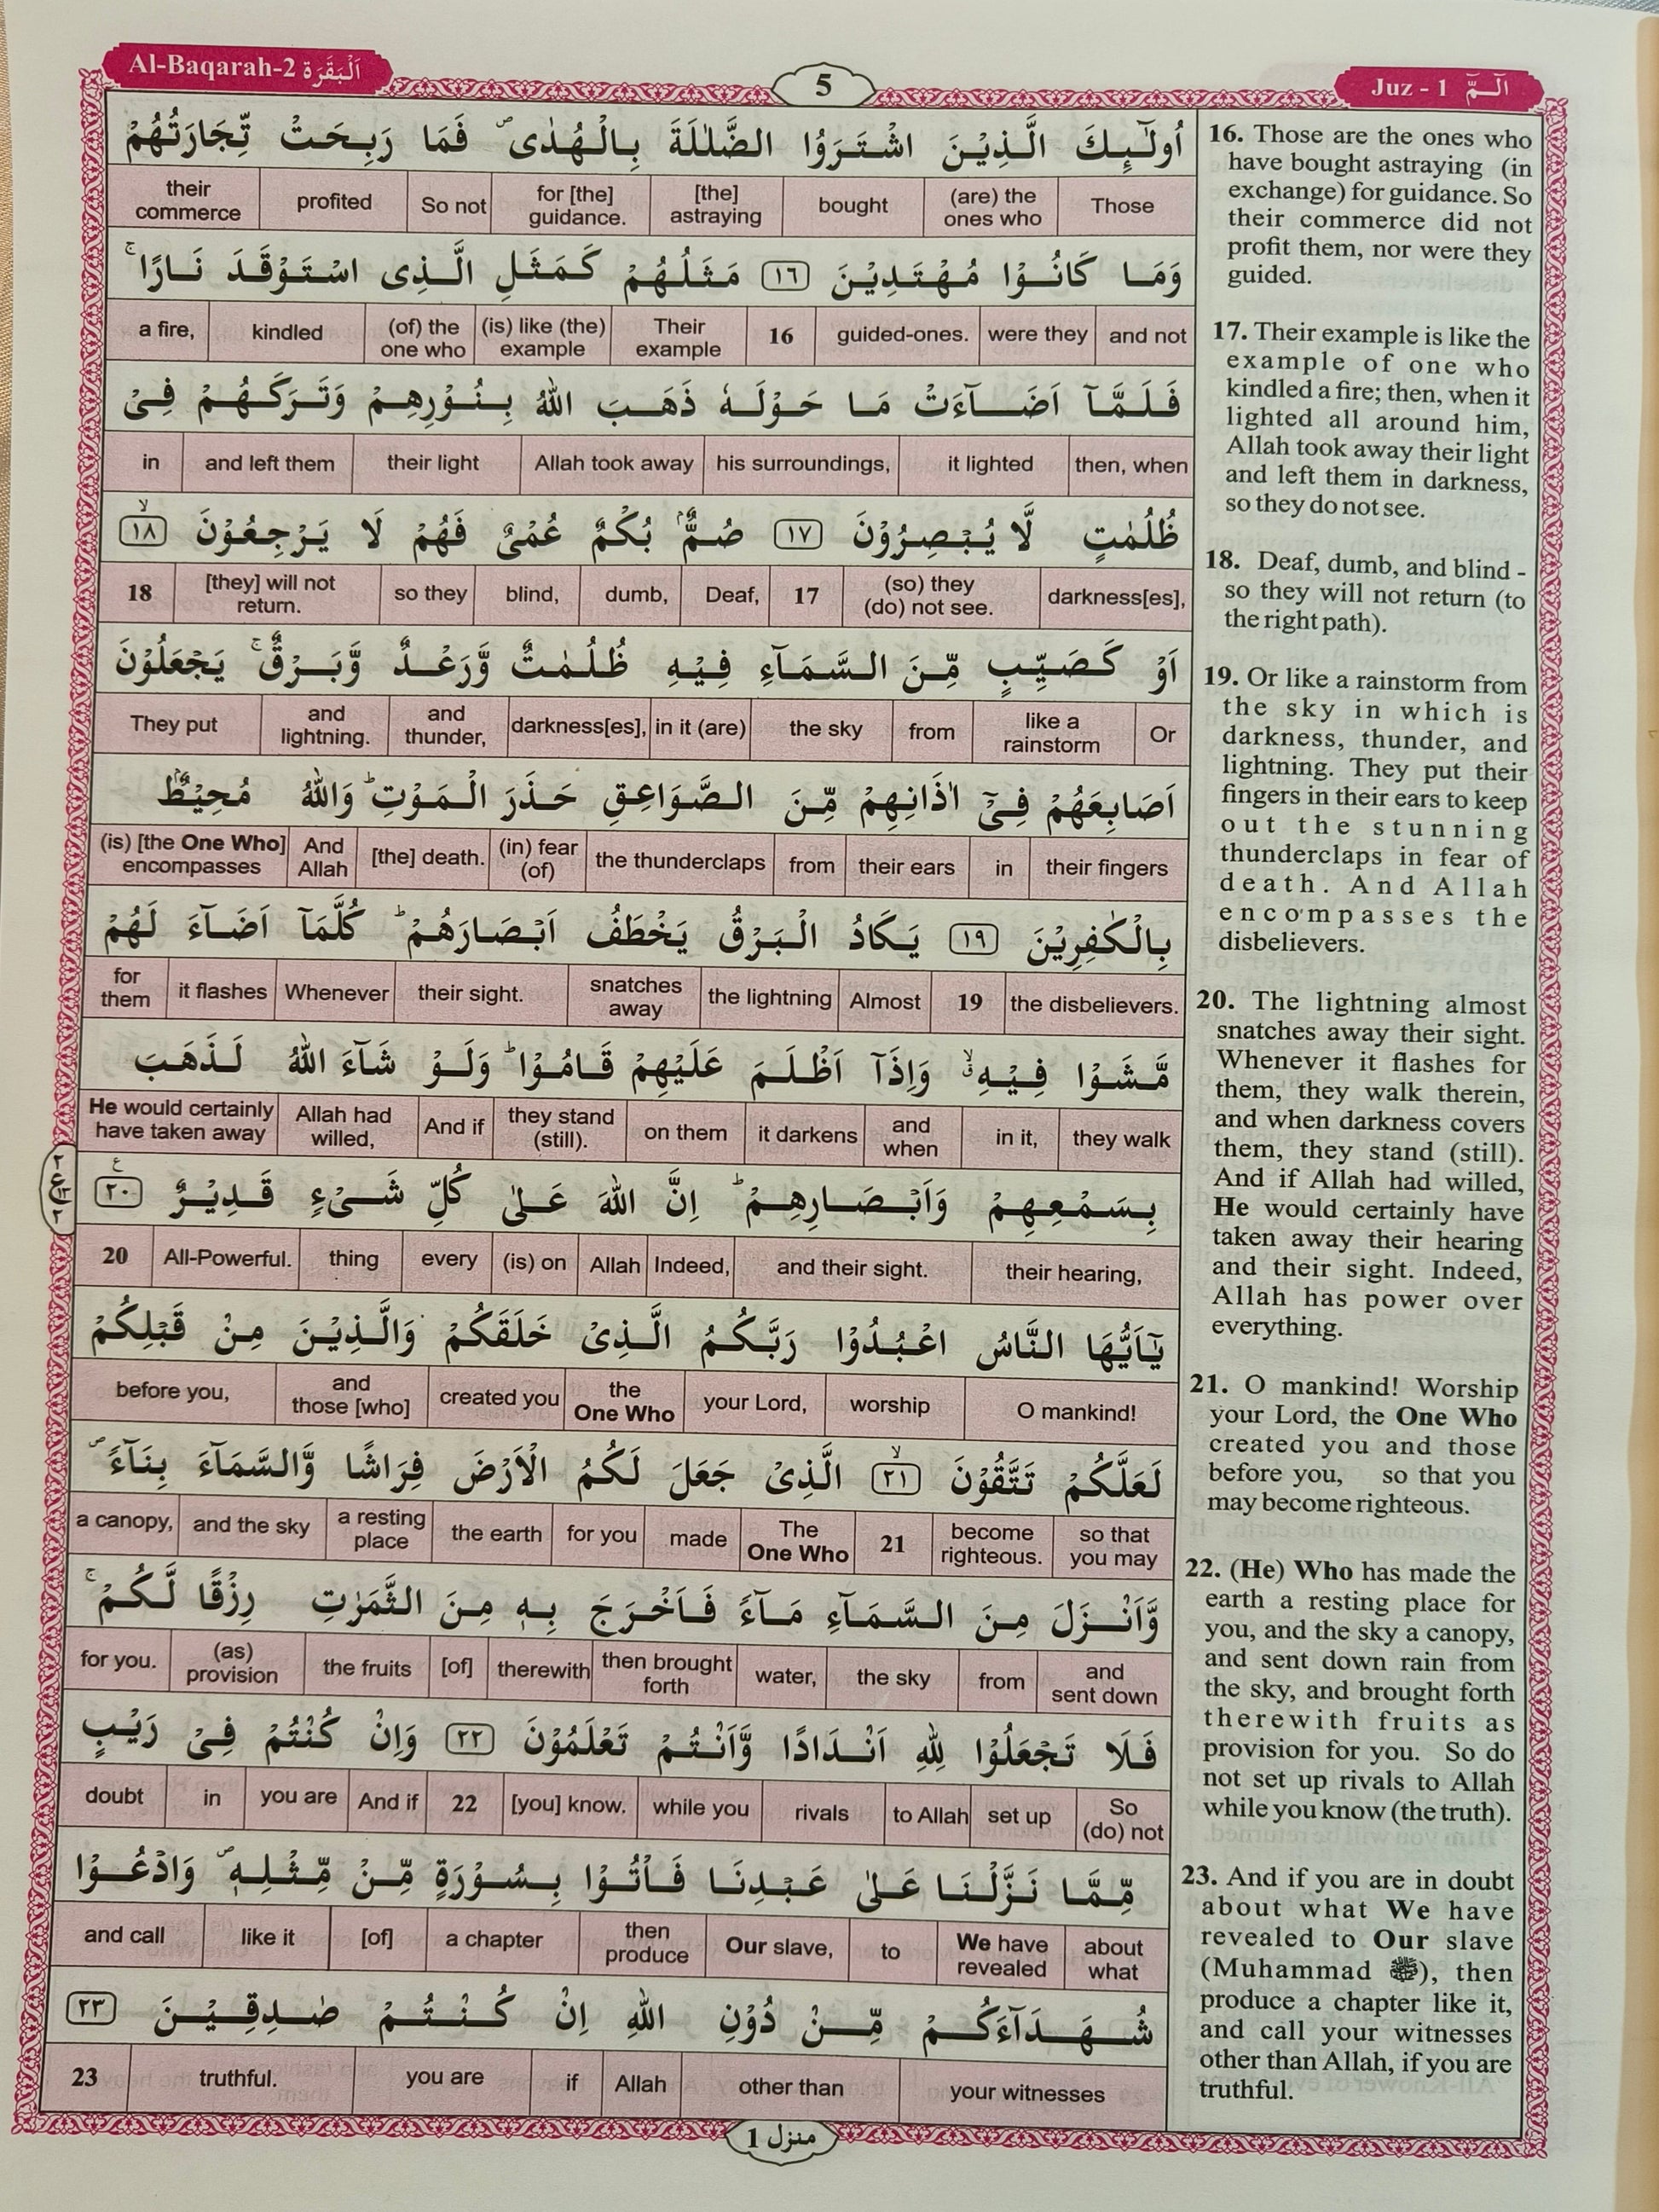 Al-Baqarah-2 اَلْبَقَرَة
5
Juz - 1 الٓـمّٓ
اُولٰٓئِكَ الَّذِيْنَ اشْتَرَوُا الضَّلٰلَةَ بِالْهُدٰى ۪ فَمَا رَبِحَتْ تِّجَارَتُهُمْ
Those | (are) the ones who | bought | [the] astraying | for [the] guidance. | So not | profited | their commerce
وَمَا كَانُوْا مُهْتَدِيْنَ ١٦ مَثَلُهُمْ كَمَثَلِ الَّذِى اسْتَوْقَدَ نَارًا ۚ
and not | were they | guided-ones. | 16 | Their example | (is) like (the) example | (of) the one who | kindled | a fire,
فَلَمَّآ اَضَآءَتْ مَا حَوْلَهٗ ذَهَبَ اللّٰهُ بِنُوْرِهِمْ وَتَرَكَهُمْ فِىْ
then, when | it lighted | his surroundings, | Allah took away | their light | and left them | in
ظُلُمٰتٍ لَّا يُبْصِرُوْنَ ١٧ صُمٌّۢ بُكْمٌ عُمْىٌ فَهُمْ لَا يَرْجِعُوْنَ ۙ ١٨
darkness[es], | (so) they (do) not see. | 17 | Deaf, | dumb, | blind, | so they | [they] will not return. | 18
اَوْ كَصَيِّبٍ مِّنَ السَّمَآءِ فِيْهِ ظُلُمٰتٌ وَّرَعْدٌ وَّبَرْقٌ ۚ يَجْعَلُوْنَ
Or | like a rainstorm | from | the sky | in it (are) | darkness[es], | and thunder, | and lightning. | They put
اَصَابِعَهُمْ فِىْٓ اٰذَانِهِمْ مِّنَ الصَّوَاعِقِ حَذَرَ الْمَوْتِ ؕ وَاللّٰهُ مُحِيْطٌۢ
their fingers | in | their ears | from | the thunderclaps | (in) fear (of) | [the] death. | And Allah | (is) [the One Who] encompasses
بِالْكٰفِرِيْنَ ١٩ يَكَادُ الْبَرْقُ يَخْطَفُ اَبْصَارَهُمْ ؕ كُلَّمَآ اَضَآءَ لَهُمْ
the disbelievers. | 19 | Almost | the lightning | snatches away | their sight. | Whenever | it flashes | for them
مَّشَوْا فِيْهِ ۙ وَاِذَآ اَظْلَمَ عَلَيْهِمْ قَامُوْا ؕ وَلَوْ شَآءَ اللّٰهُ لَذَهَبَ
they walk | in it, | and when | it darkens | on them | they stand (still). | And if | Allah had willed, | He would certainly have taken away
بِسَمْعِهِمْ وَاَبْصَارِهِمْ ؕ اِنَّ اللّٰهَ عَلٰى كُلِّ شَىْءٍ قَدِيْرٌ ٢٠
their hearing, | and their sight. | Indeed, | Allah | (is) on | every | thing | All-Powerful. | 20
يٰٓاَيُّهَا النَّاسُ اعْبُدُوْا رَبَّكُمُ الَّذِىْ خَلَقَكُمْ وَالَّذِيْنَ مِنْ قَبْلِكُمْ
O mankind! | worship | your Lord, | the One Who | created you | and those [who] | before you,
لَعَلَّكُمْ تَتَّقُوْنَ ۙ ٢١ الَّذِىْ جَعَلَ لَكُمُ الْاَرْضَ فِرَاشًا وَّالسَّمَآءَ بِنَآءً ۪
so that you may | become righteous. | 21 | The One Who | made | for you | the earth | a resting place | and the sky | a canopy,
وَّاَنْزَلَ مِنَ السَّمَآءِ مَآءً فَاَخْرَجَ بِهٖ مِنَ الثَّمَرٰتِ رِزْقًا لَّكُمْ ۚ
and sent down | from | the sky | water, | then brought forth | therewith | [of] | the fruits | (as) provision | for you.
فَلَا تَجْعَلُوْا لِلّٰهِ اَنْدَادًا وَّاَنْتُمْ تَعْلَمُوْنَ ٢٢ وَاِنْ كُنْتُمْ فِىْ رَيْبٍ
So (do) not | set up | to Allah | rivals | while you | [you] know. | 22 | And if | you are | in | doubt
مِّمَّا نَزَّلْنَا عَلٰى عَبْدِنَا فَاْتُوْا بِسُوْرَةٍ مِّنْ مِّثْلِهٖ ۪ وَادْعُوْا
about what | We have revealed | to | Our slave, | then produce | a chapter | [of] | like it | and call
شُهَدَآءَكُمْ مِّنْ دُوْنِ اللّٰهِ اِنْ كُنْتُمْ صٰدِقِيْنَ ٢٣
your witnesses | other than | Allah | if | you are | truthful. | 23
16. Those are the ones who
have bought astraying (in
exchange) for guidance. So
their commerce did not
profit them, nor were they
guided.
17. Their example is like the
example of one who
kindled a fire; then, when it
lighted all around him,
Allah took away their light
and left them in darkness,
so they do not see.
18. Deaf, dumb, and blind -
so they will not return (to
the right path).
19. Or like a rainstorm from
the sky in which is
darkness, thunder, and
lightning. They put their
fingers in their ears to keep
out the stunning
thunderclaps in fear of
death. And Allah
encompasses the
disbelievers.
20. The lightning almost
snatches away their sight.
Whenever it flashes for
them, they walk therein,
and when darkness covers
them, they stand (still).
And if Allah had willed,
He would certainly have
taken away their hearing
and their sight. Indeed,
Allah has power over
everything.
21. O mankind! Worship
your Lord, the One Who
created you and those
before you, so that you
may become righteous.
22. (He) Who has made the
earth a resting place for
you, and the sky a canopy,
and sent down rain from
the sky, and brought forth
therewith fruits as
provision for you. So do
not set up rivals to Allah
while you know (the truth).
23. And if you are in doubt
about what We have
revealed to Our slave
(Muhammad ﷺ), then
produce a chapter like it,
and call your witnesses
other than Allah, if you are
truthful.
منزل 1